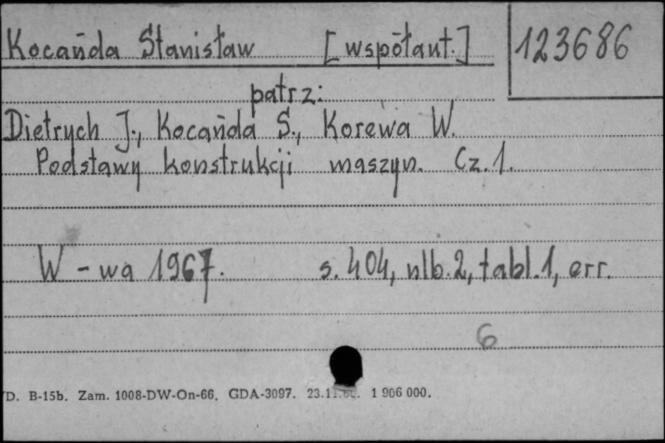 Kocańda Stanisław [współaut.] 123686
patrz:
Dietrych J., Kocańda S., Korewa W.
Podstawy konstrukcji maszyn. Cz.1.
W-wa 1967. s. 404, nlb. 2, tabl. 1, err.
6
D. B-15b. Zam. 1008-DW-On-66. GDA-3097. 1 906 000.